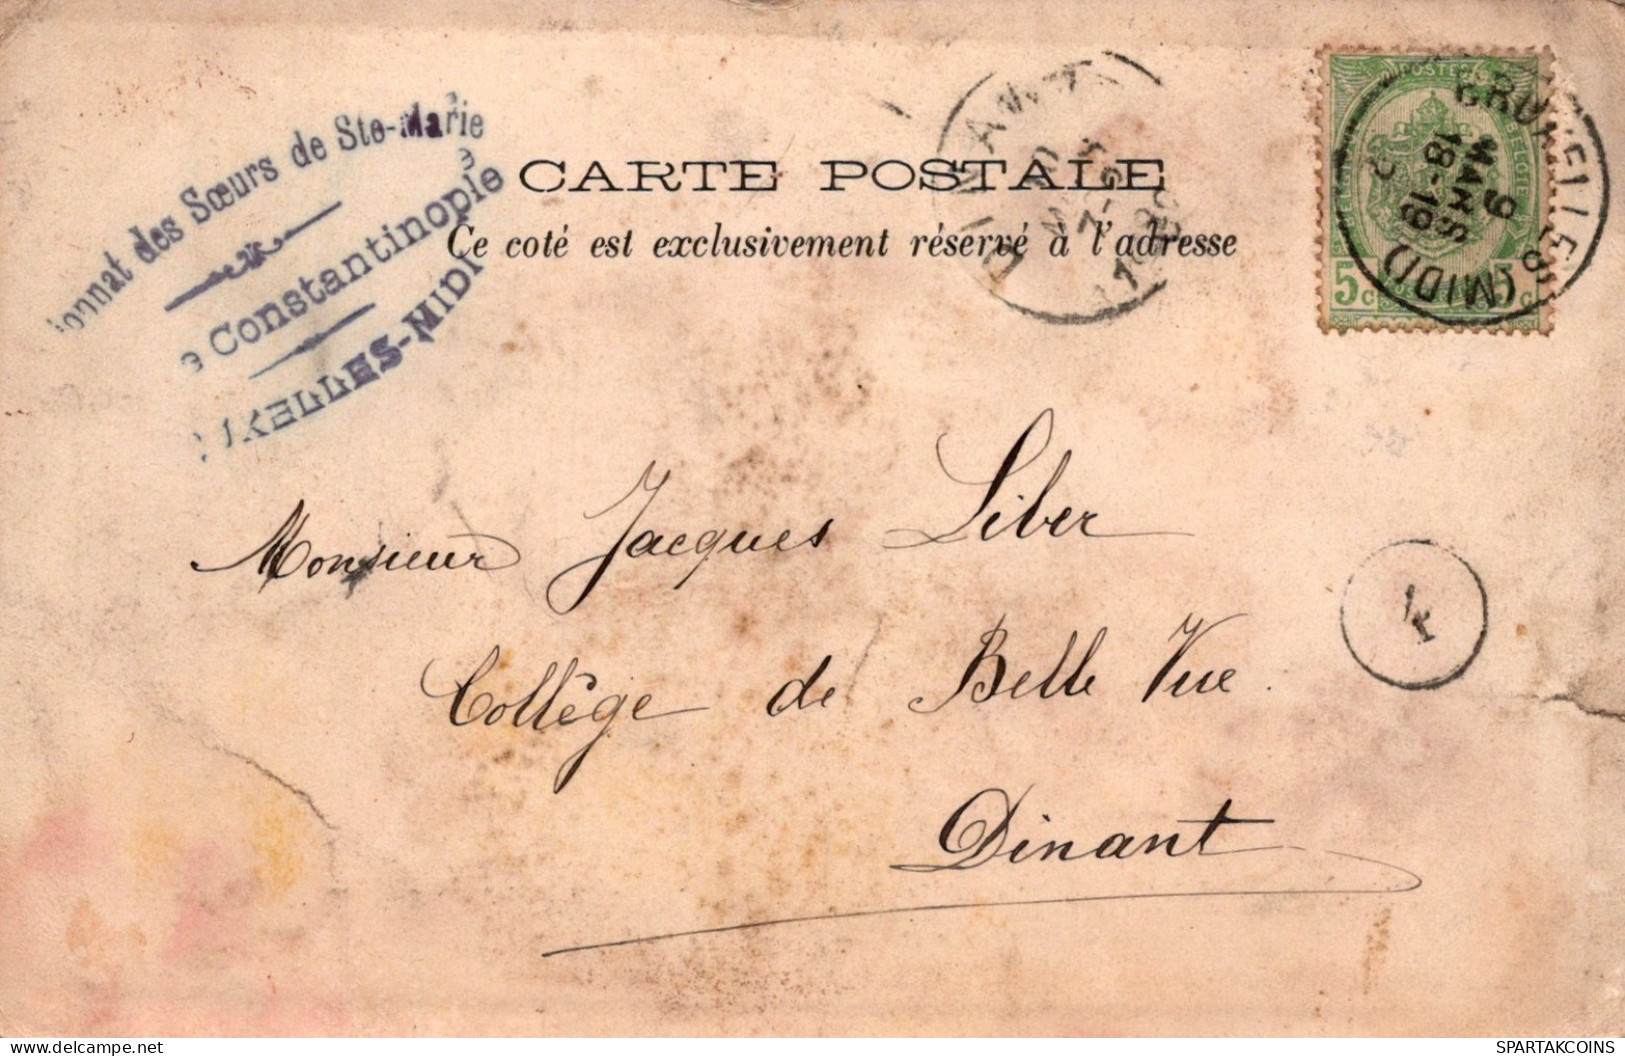 onnat des Sœurs de Ste-Marie
e Constantinople
XELLES-MIDI
CARTE POSTALE
Ce coté est exclusivement réservé à l'adresse
DINANT
POSTE
5c
BRUXELLES
(MIDI)
9
MARS
18-19
Monsieur Jacques Liber
Collège de Belle Vue.
Dinant
www.delcampe.net
SPARTAKCOINS